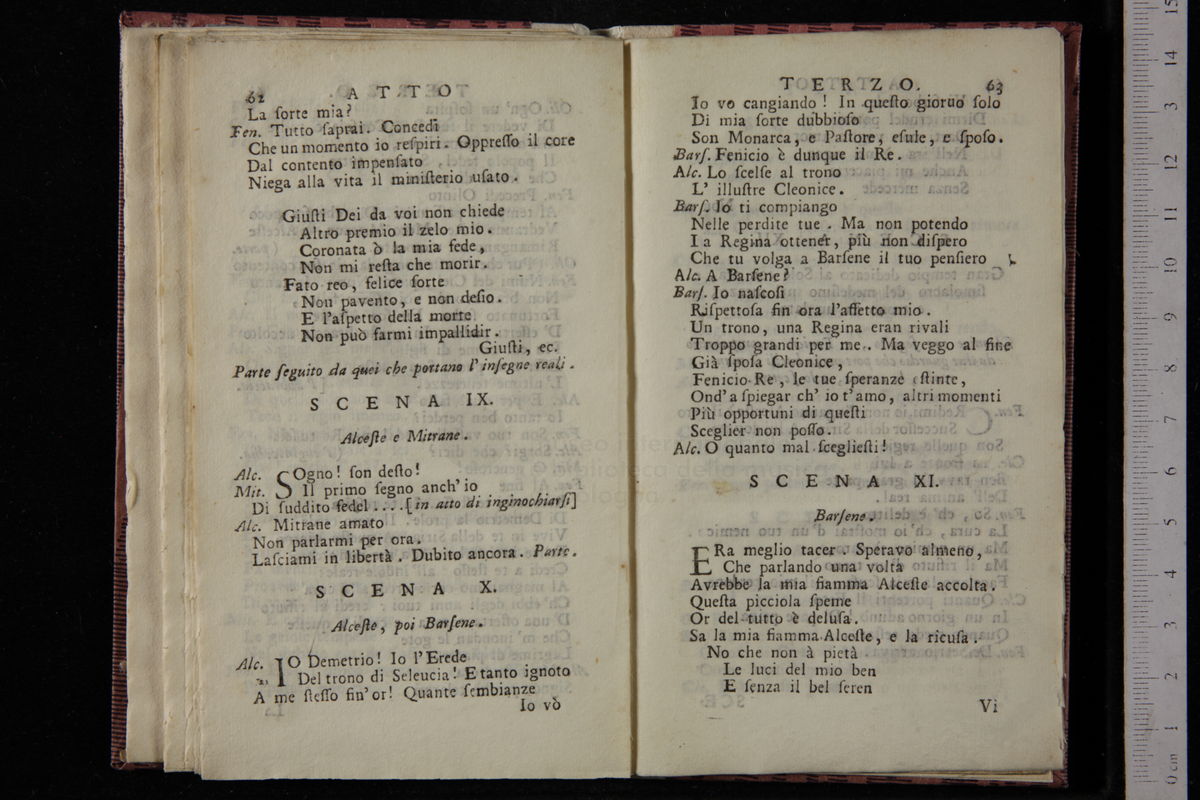 62 ATTO
La ſorte mia?
Fen. Tutto ſaprai. Concedi
Che un momento io reſpiri. Oppreſſo il core
Dal contento impenſato
Niega alla vita il miniſterio uſato.
Giuſti Dei da voi non chiede
Altro premio il zelo mio.
Coronata ò la mia fede,
Non mi reſta che morir.
Fato reo, felice ſorte
Non pavento, e non deſio.
E l'aſpetto della morte
Non può farmi impallidir.
Giuſti, ec.
Parte ſeguito da quei che portano l'inſegne reali.
SCENA IX.
Alceſte e Mitrane.
Alc. SOgno! ſon deſto!
Mit. Il primo ſegno anch'io
Di ſuddito fedel .... [in atto di inginochiarſi]
Alc. Mitrane amato
Non parlarmi per ora.
Laſciami in libertà. Dubito ancora. Parte.
SCENA X.
Alceſte, poi Barſene.
Alc. IO Demetrio! Io l'Erede
Del trono di Seleucia! E tanto ignoto
A me ſteſſo fin'or! Quante ſembianze
Io vò
TERZO. 63
Io vo cangiando! In queſto gioruo ſolo
Di mia ſorte dubbioſo
Son Monarca, e Paſtore, eſule, e ſpoſo.
Barſ. Fenicio è dunque il Re.
Alc. Lo ſcelſe al trono
L' illuſtre Cleonice.
Barſ. Io ti compiango
Nelle perdite tue. Ma non potendo
La Regina ottener, più non diſpero
Che tu volga a Barſene il tuo penſiero
Alc. A Barſene?
Barſ. Io naſcoſi
Riſpettoſa fin ora l'affetto mio.
Un trono, una Regina eran rivali
Troppo grandi per me.. Ma veggo al fine
Già ſpoſa Cleonice,
Fenicio Re, le tue ſperanze eſtinte,
Ond'a ſpiegar ch' io t'amo, altri momenti
Più opportuni di queſti
Sceglier non poſſo.
Alc. O quanto mal ſceglieſti!
SCENA XI.
Barſene.
ERa meglio tacer. Speravo almeno,
Che parlando una volta
Avrebbe la mia fiamma Alceſte accolta.
Queſta picciola ſpeme
Or del tutto è deluſa.
Sa la mia fiamma Alceſte, e la ricuſa.
No che non à pietà
Le luci del mio ben
E ſenza il bel ſeren
Vi
0 cm 1 2 3 4 5 6 7 8 9 10 11 12 13 14 15